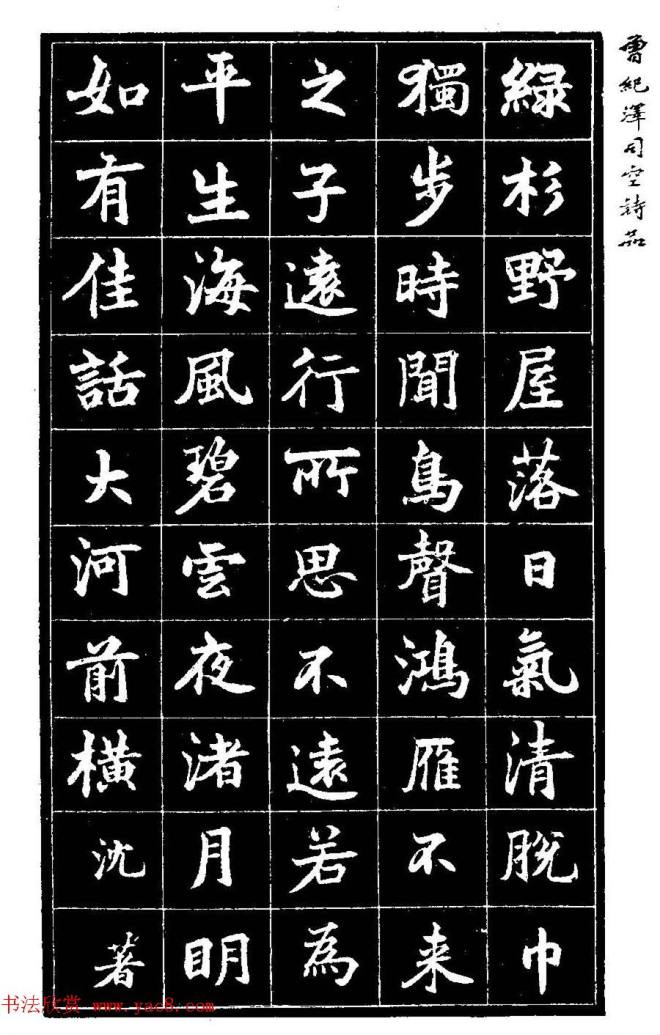 曾紀澤司空詩品
綠杉野屋落日氣清脫巾
獨步時聞鳥聲鴻雁不来
之子遠行所思不遠若為
平生海風碧雲夜渚月明
如有佳話大河前橫沈著
书法欣赏 www.yac8.com